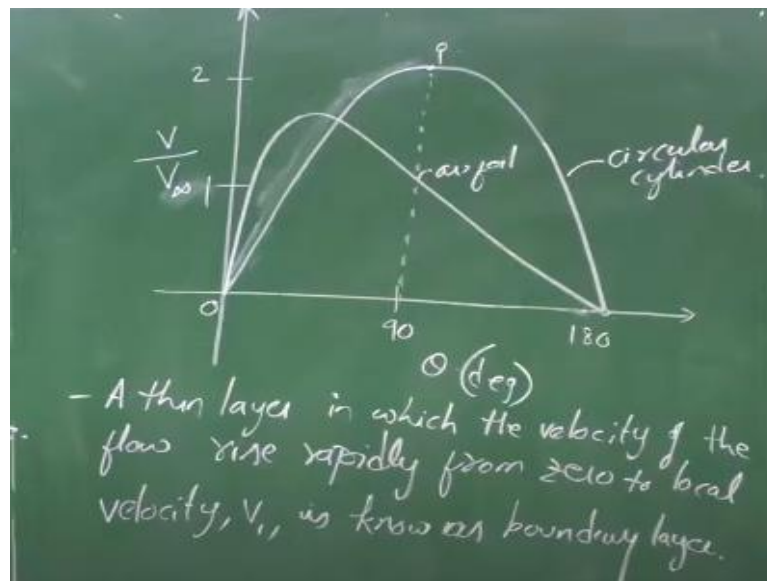 9
2
V
V∞
1
airfoil
circular
cylinder.
0
90
180
θ (deg)
- A thin layer in which the velocity of the
flow rise rapidly from zero to local
velocity, V₁, is know as boundary layer.